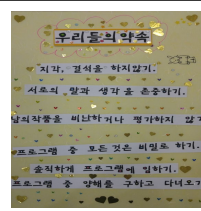 우리들의 약속
지각, 결석을 하지않기.
서로의 말과 생각을 존중하기.
의작품을 비난하거나 평가하지 않
프로그램 중 모든것은 비밀로 하기.
솔직하게 프로그램에 임하기.
프로그램 중 양해를 구하고 다녀오기